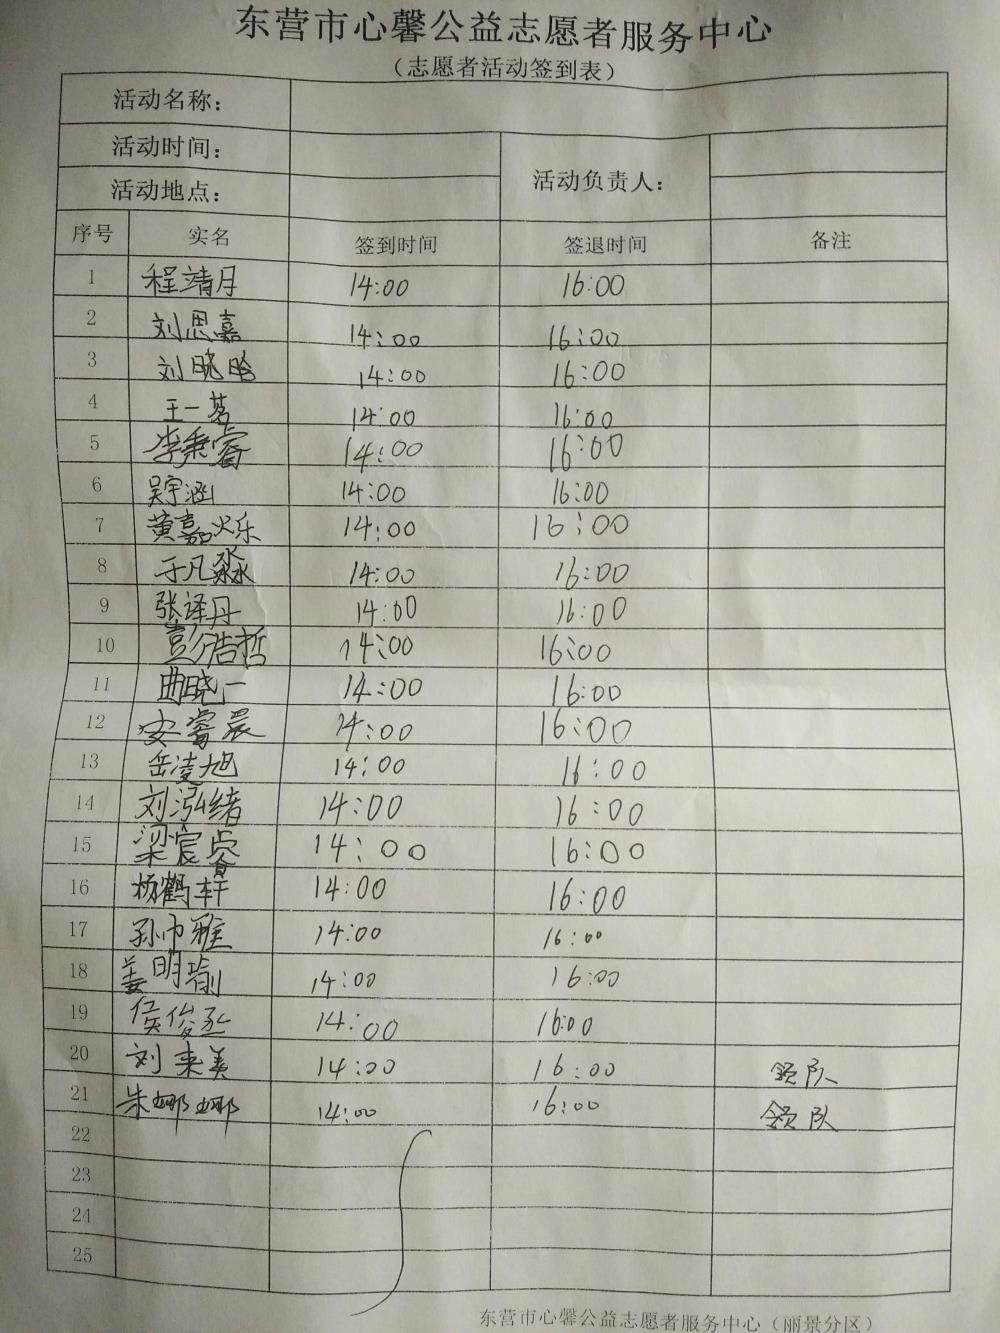 东营市心馨公益志愿者服务中心
（志愿者活动签到表）
活动名称：
活动时间： 活动负责人：
活动地点：
序号 实名 签到时间 签退时间 备注
1 程靖月 14:00 16:00
2 刘思嘉 14:00 16:00
3 刘晓晗 14:00 16:00
4 王一茗 14:00 16:00
5 李秉睿 14:00 16:00
6 吴宇涵 14:00 16:00
7 黄嘉烁 14:00 16:00
8 于凡淼 14:00 16:00
9 张译丹 14:00 16:00
10 彭浩哲 14:00 16:00
11 曲晓一 14:00 16:00
12 安睿宸 14:00 16:00
13 岳凌旭 14:00 16:00
14 刘泓绪 14:00 16:00
15 梁宸睿 14:00 16:00
16 杨鹤轩 14:00 16:00
17 孙巾雅 14:00 16:00
18 姜明瑜 14:00 16:00
19 侯俊丞 14:00 16:00
20 刘来美 14:00 16:00 领队
21 朱娜娜 14:00 16:00 领队
22
23
24
25
东营市心馨公益志愿者服务中心（丽景分区）